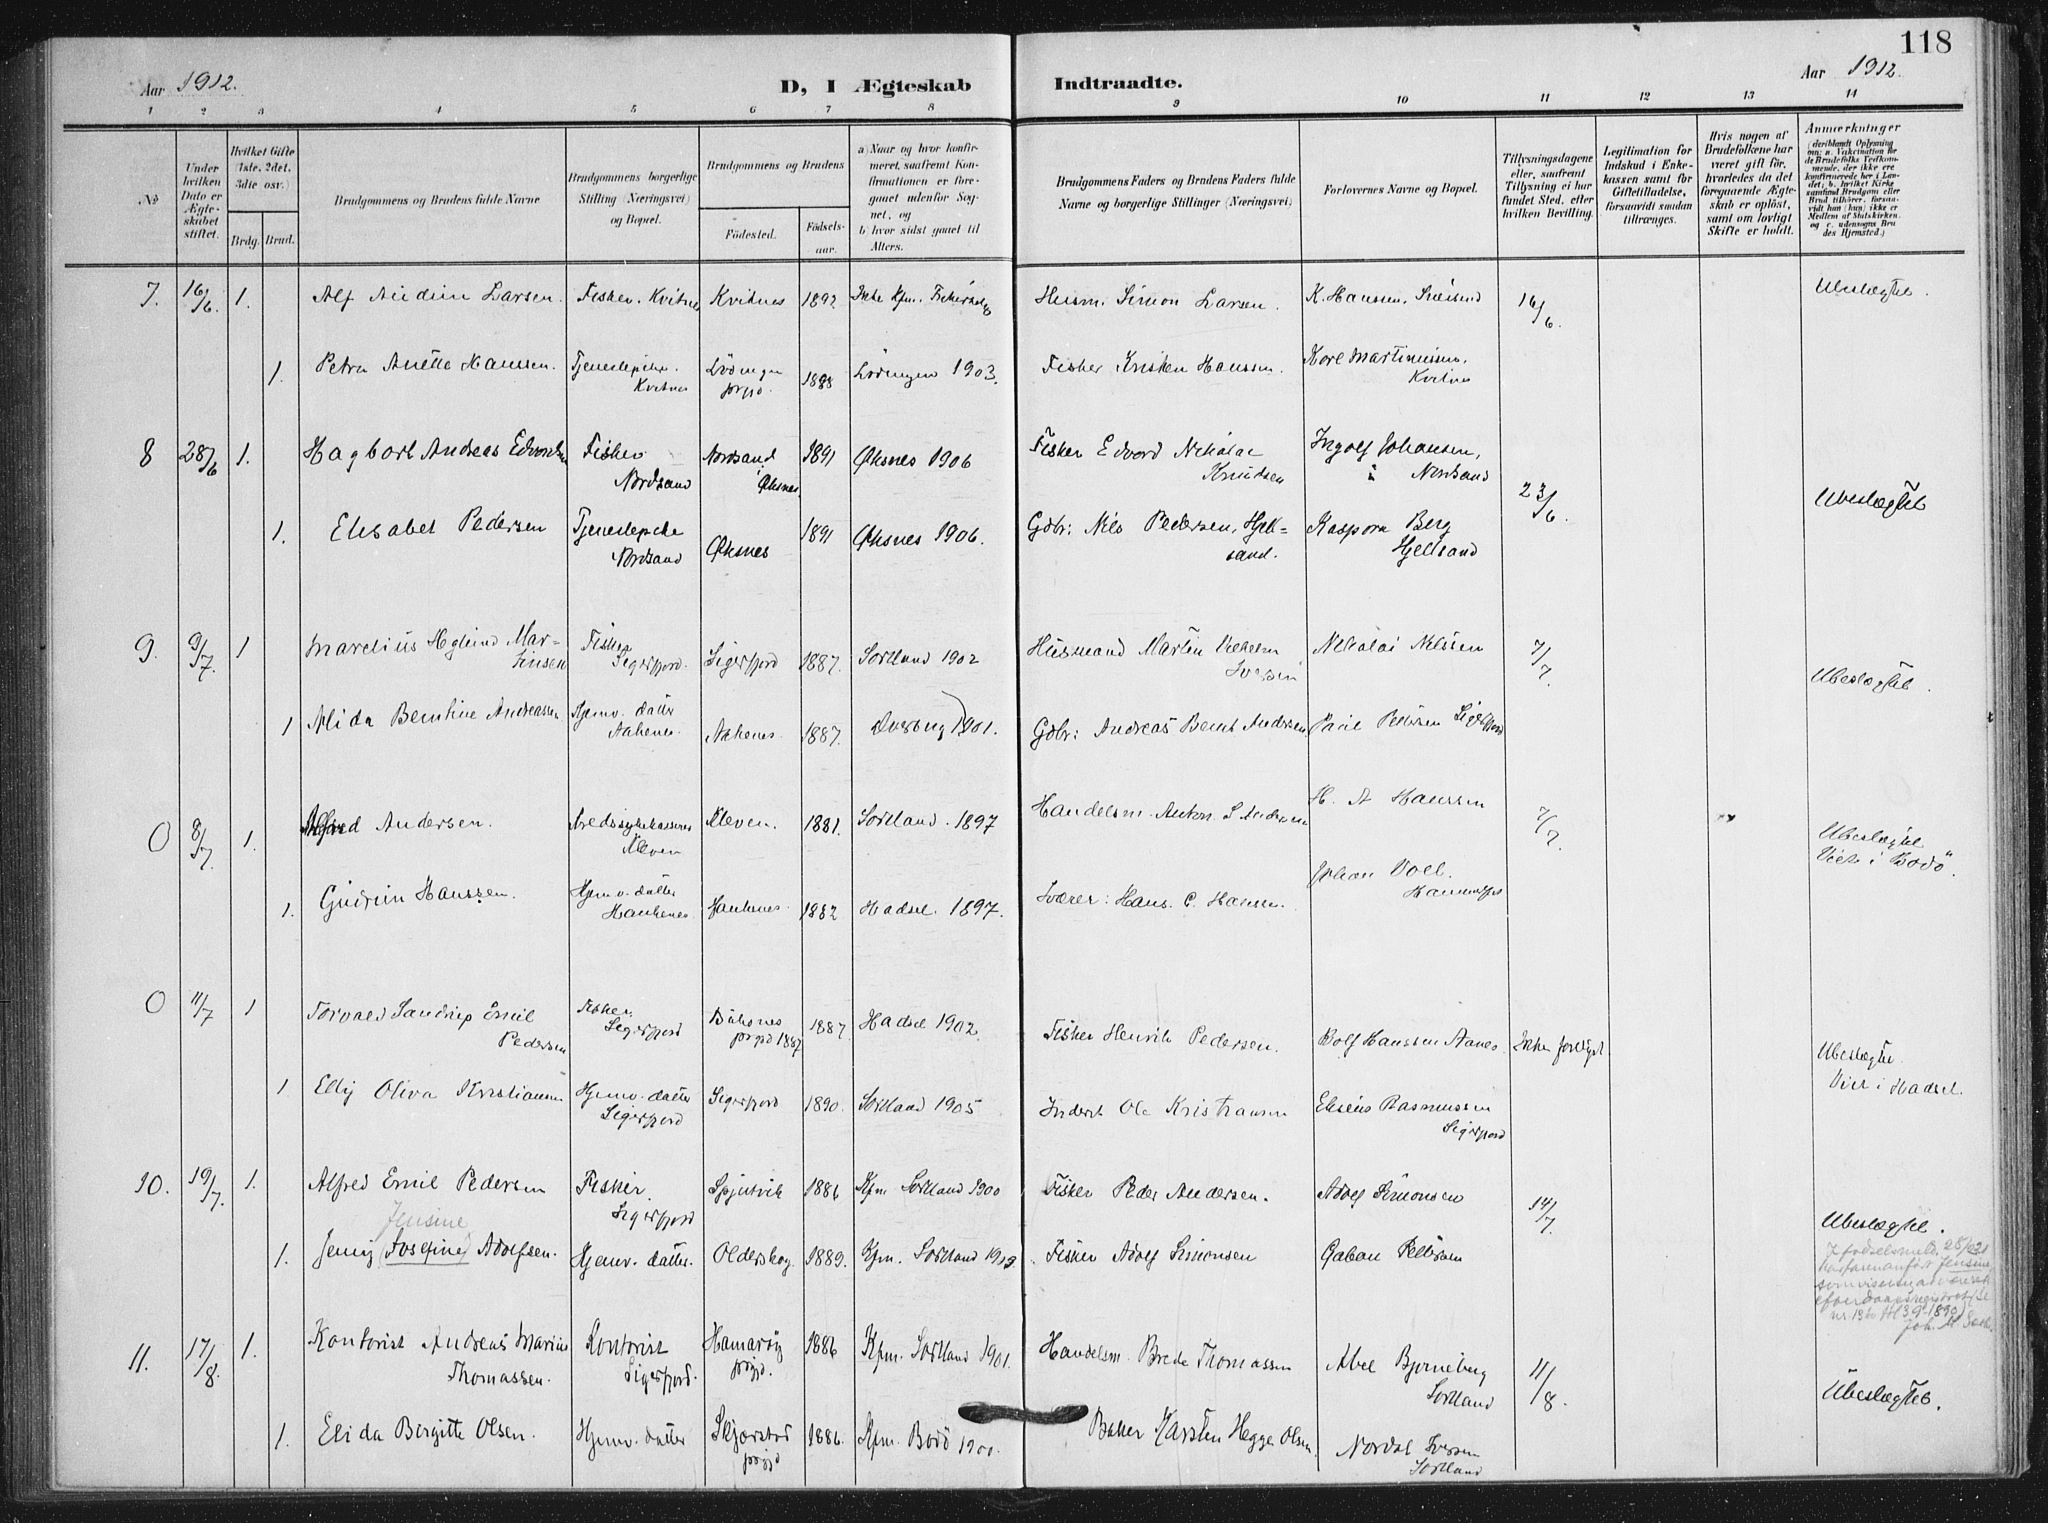 118
Aar 1912.
D, I Ægteskab Indtraadte.
Aar 1912.
1 2 3 4 5 6 7 8 9 10 11 12 13 14
No
Under hvilken Dato er Ægteskabet stiftet.
Hvilket Gifte (1ste, 2det, 3die osv.)
Brdg. Brud.
Brudgommens og Brudens fulde Navne
Brudgommens borgerlige Stilling (Næringsvei) og Bopæl.
Brudgommens og Brudens
Fødested. Fødselsaar.
a) Naar og hvor konfirmeret, saafremt Konfirmationen er foregaaet udenfor Sognet, og
b) hvor sidst gaaet til Alters.
Brudgommens Faders og Brudens Faders fulde Navne og borgerlige Stillinger (Næringsvei)
Forlovernes Navne og Bopæl.
Tillysningsdagene eller, saafremt Tillysning ei har fundet Sted, efter hvilken Bevilling.
Legitimation for Indskud i Enkekassen samt for Giftetilladelse, forsaavidt saadan tiltrænges.
Hvis nogen af Brudefolkene har været gift før, hvorledes da det foregaaende Ægteskab er opløst, samt om lovligt Skifte er holdt.
Anmærkninger
7. 16/6. 1. Alf Audun Larsen. Fisker. Kvitnes Kvitnes 1892 Husm. Simon Larsen. K. Hanssen. 16/6. Ubeslægtet.
1. Petra Anette Hanssen. Kvitnes Lødingen prgjd. 1888 Lødingen 1903. Fisker Kristen Hanssen. Kore Martinussen. Kvitnes
8 28/6 1. Hagbart Andreas Edvardsen Fisker Nordsand Nordsand i Øksnes. 1891 Øksnes 1906 Fisker Edvard Nikolai Knudsen Ingolf Johansen, i Nordsand 23/6. Ubeslægtet
1. Elisabet Pedersen Nordsand Øksnes 1891 Øksnes 1906. Gdbr: Nils Pedersen, Hjellsand. Kaspara Berg Hjellsand
9. 9/7. 1 Marelius Heglund Martinsen Fisker Sigerfjord. Sigerfjord 1887. Sortland 1902 Husmand Martin Vilhelm Iversen Nikolai Nilssen 7/7. Ubeslægtet.
1 Alida Berntine Andreassen Hjemv. datter Aakenes. Aakenes. 1887. Dverberg 1901. Gdbr: Andreas Bernt Andersen Paul Pettersen Sigerfjord
0 9/7. 1. Alfred Andersen. Kleven Kleven. 1881. Sortland. 1897 Handelsm. Anton S. Andersen H. A Hanssen 7/7. Ubeslægtet Viet i Bodø.
1. Gudrun Hanssen. Hjemv. datter Haukenes Haukenes. 1882 Hadsel. 1897. Hans. C. Hanssen. Johan Voll.
0 11/7 1 Torvald Sandrup Emil Pedersen Fisker. Sigerfjord Buksnes prgjd 1887 1887. Hadsel 1902. Fisker Henrik Pedersen. Rolf Hanssen Aanes. Ikke forelyst. Ubeslægtet. Viet i Hadsel.
1 Elly Oliva Kristiansen Hjemv. datter Sigerfjord Sigerfjord 1890. Sortland 1905 Inderst Ole Kristiansen Eliseus Rasmussen Sigerfjord
10. 19/7. 1. Alfred Emil Pedersen Fisker. Sigerfjord Spjutvik 1886 Kfm. Sortland 1900 Fisker Peder Andersen. Adolf Simonsen 14/7. Ubeslægtet.
Jensine
1. Jenny (Josefine) Adolfsen. Hjemv. datter. Olderskog. 1889. Kfm. Sortland 1903. Fisker Adolf Simonsen Gaban Pettersen
11. 17/8. 1. Kontorist Andreas Marius Thomassen. Kontorist Sigerfjord. Hamarøy prgjd. 1886 Kfm. Sortland 1901. Handelsm. Brede Thomassen Abel Bjørneberg Sortland 11/8. Ubeslægtet.
1. Elida Birgitte Olsen. Hjemv. datter Skjerstad prgjd 1886. Kfm. Bodø 1900. Baker Karsten Hegge Olsen. Nordal Iversen Sortland